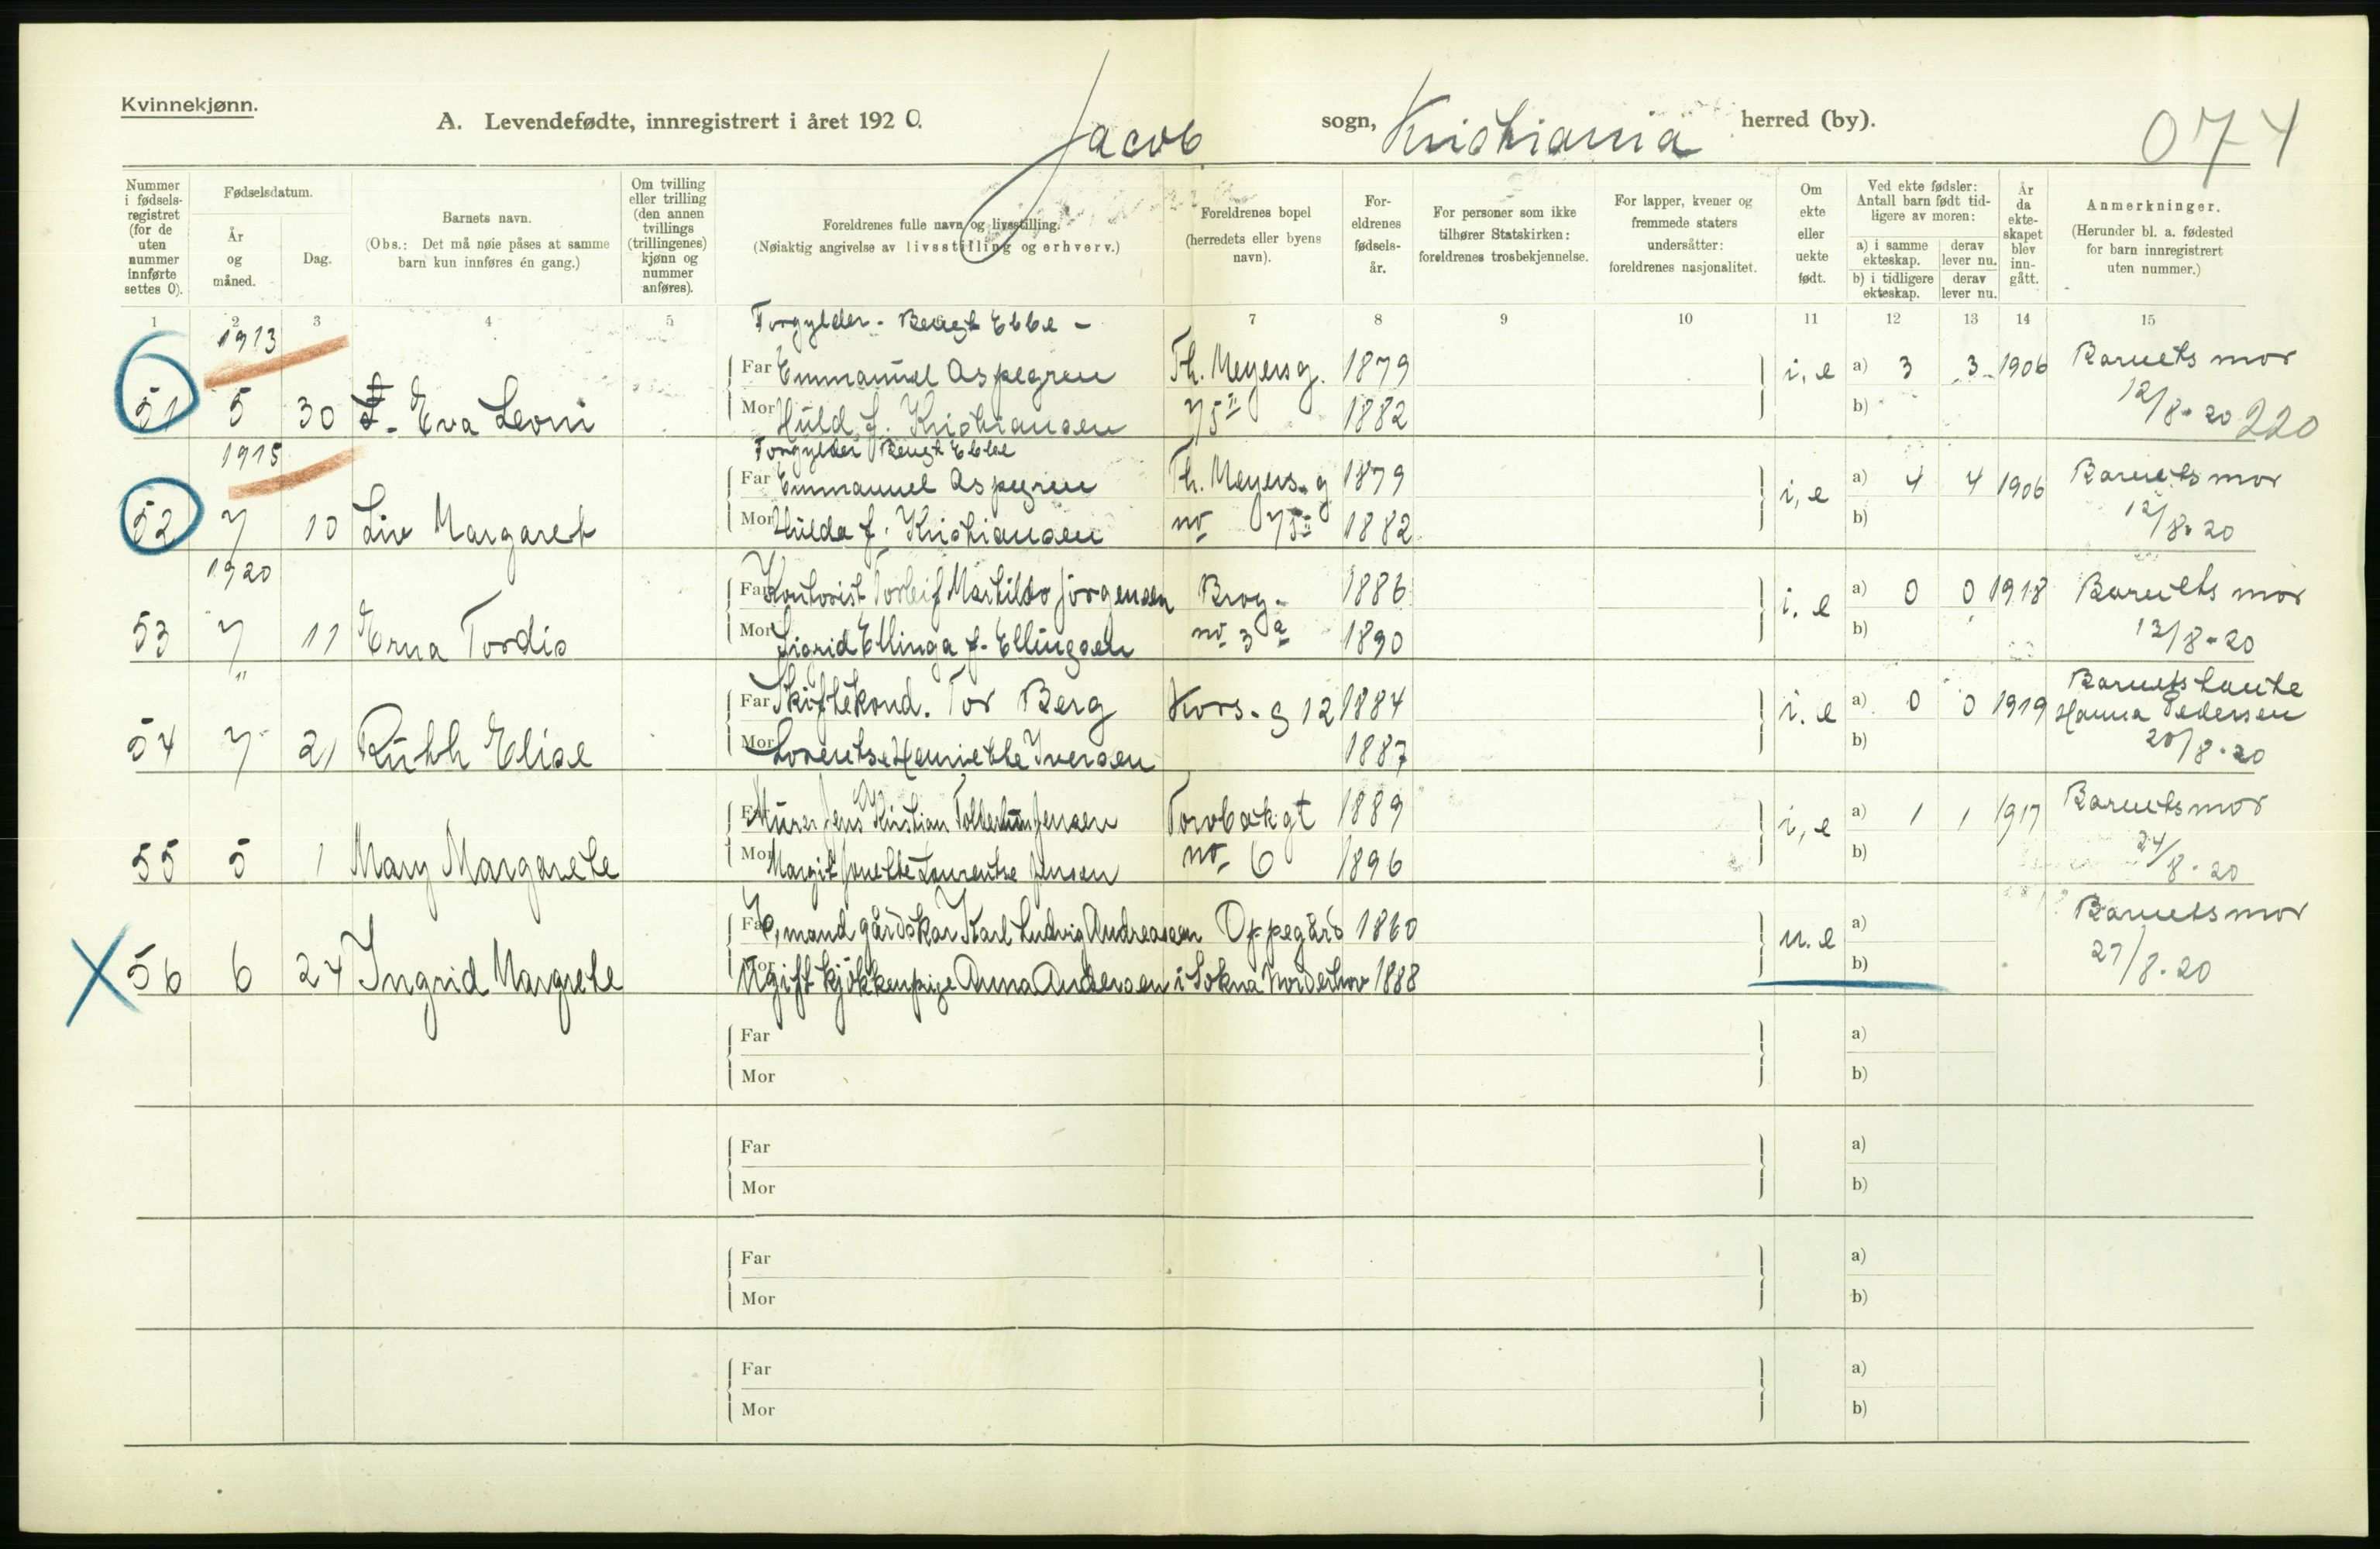 Kvinnekjønn.
A. Levendefødte, innregistrert i året 1920. Jacob sogn, Kristiania herred (by). 074
Nummer i fødsels-registret (for de uten nummer innførte settes 0).
Fødselsdatum.
År og måned.
Dag.
Barnets navn.
(Obs.: Det må nøie påses at samme barn kun innføres én gang.)
Om tvilling eller trilling (den annen tvillings (trillingenes) kjønn og nummer anføres).
Foreldrenes fulle navn og livsstilling.
(Nøiaktig angivelse av livsstilling og erhverv.)
Foreldrenes bopel (herredets eller byens navn).
For-eldrenes fødsels-år.
For personer som ikke tilhører Statskirken: foreldrenes trosbekjennelse.
For lapper, kvener og fremmede staters undersåtter: foreldrenes nasjonalitet.
Om ekte eller uekte født.
Ved ekte fødsler: Antall barn født tid-ligere av moren:
a) i samme ekteskap. derav lever nu.
b) i tidligere ekteskap. derav lever nu.
År da ekte-skapet blev inn-gått.
Anmerkninger.
(Herunder bl. a. fødested for barn innregistrert uten nummer.)
1 2 3 4 5 7 8 9 10 11 12 13 14 15
1913 Forgylder - Bengt Ebbe -
Far Emmanuel Aspegren Th. Meyersg. 1879 i, e a) 3 3 1906 Barnets mor
51 5 30 Eva Leoni Mor Huld f. Kristiansen 75 II 1882 b) 12/8-20 220
1915 Forgylder Bengt Ebbe
Far Emmanuel Aspegren Th. Meyers. g 1879 i, e a) 4 4 1906 Barnets mor
52 7 10 Liv Margaret Mor Hulda f. Kristiansen no 75 II 1882 b) 12/8-20
1920
Far Kontorist Torleif Martilds Jörgensen Brog. 1886 i. e a) 0 0 1918 Barnets mor
53 7 11 Erna Tordis Mor Sigrid Ellinga f. Ellingsen no 3 a 1890 b) 13/8-20
" Far Skiftekond. Tor Berg Kors. g 12 1884 i. e a) 0 0 1919 Barnets tante Hanna Pedersen
54 7 21 Ruth Elise Mor Lorentse Henriette Iversen 1887 b) 20/8-20
Far Murer Jens Kristian Jensen Torvbakgt 1889 i, e a) 1 1 1917 Barnets mor
55 5 1 Mary Margarete Mor Margit Jonette Laurentse Jensen no 6 1896 b) 24/8-20
Far E, mand gårdskar Karl Ludvig Andreassen Oppegård 1860 u. e a) Barnets mor
56 6 24 Ingrid Margrete Mor Ugift kjøkkenpige Anna Andersen i Sokna Norderhov 1888 b) 27/8-20
Far a)
Mor b)
Far a)
Mor b)
Far a)
Mor b)
Far a)
Mor b)